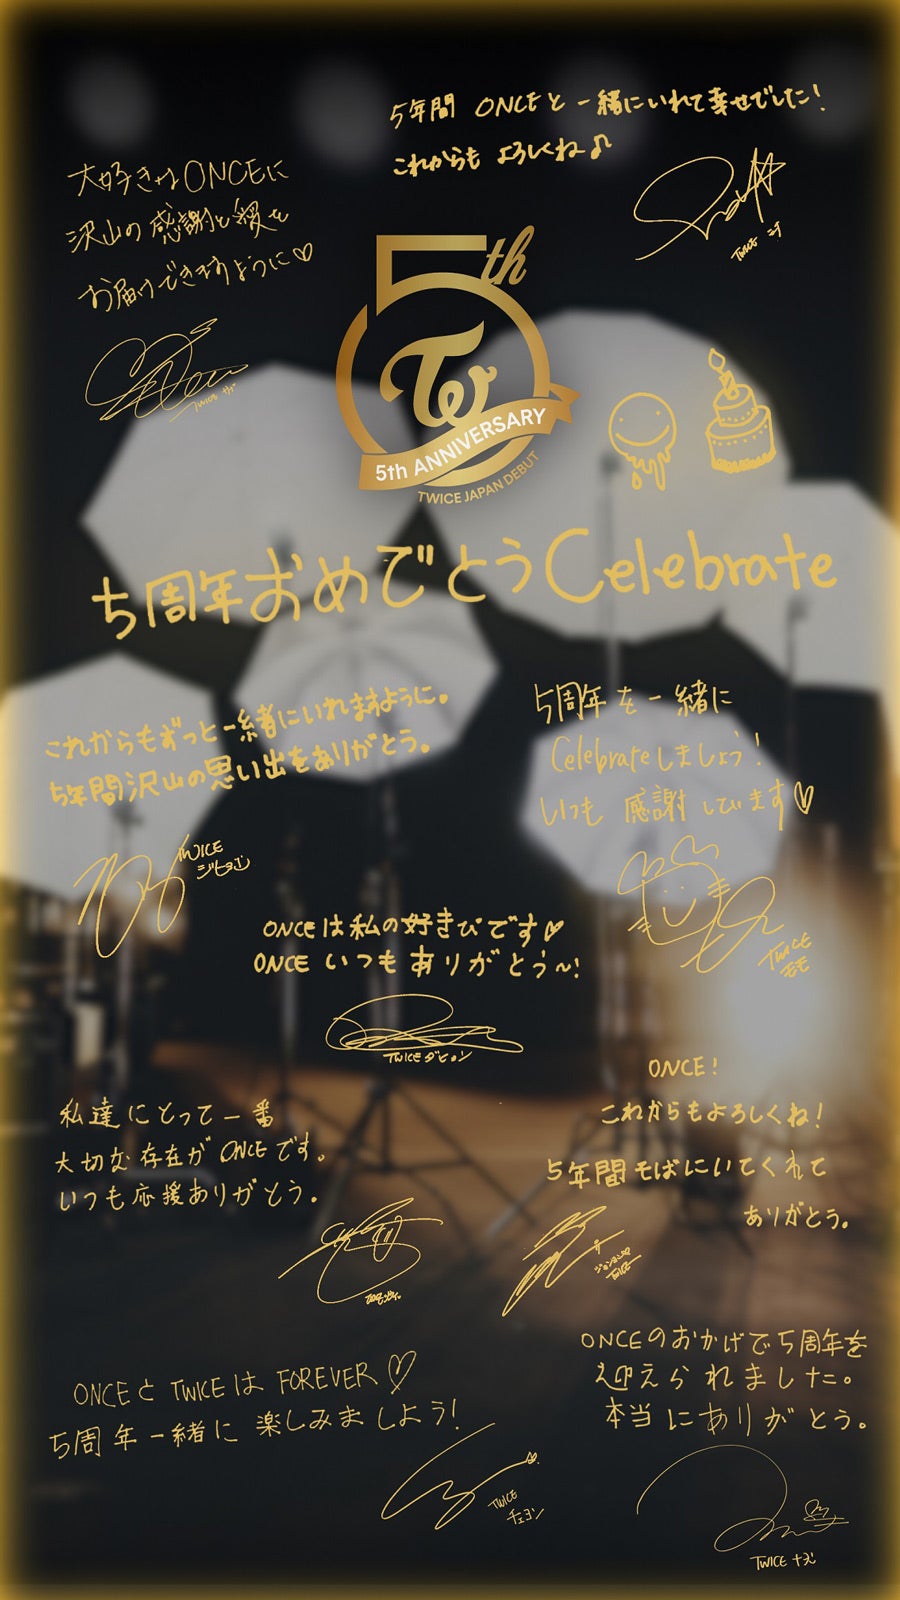 5年間 ONCEと一緒にいれて幸せでした!
これからも よろしくね♪
TWICE ミナ
大好きなONCEに
沢山の感謝と愛を
お届けできますように♡
TWICE サナ
5th
TW
5th ANNIVERSARY
TWICE JAPAN DEBUT
5周年おめでとうCelebrate
これからもずっと一緒にいれますように。
5年間沢山の思い出をありがとう。
TWICE
ジヒョ
5周年を一緒に
Celebrateしましょう!
いつも 感謝しています♡
TWICE
モモ
ONCEは私の好きぴです♡
ONCE いつもありがとう〜!
TWICE ダヒョン
私達にとって一番
大切な存在がONCEです。
いつも応援ありがとう。
ONCE!
これからもよろしくね!
5年間そばにいてくれて
ありがとう。
ジョンヨン♡
TWICE
ONCEとTWICEは FOREVER♡
5周年一緒に楽しみましょう!
TWICE
チェヨン
ONCEのおかげで5周年を
迎えられました。
本当にありがとう。
TWICE ナヨン